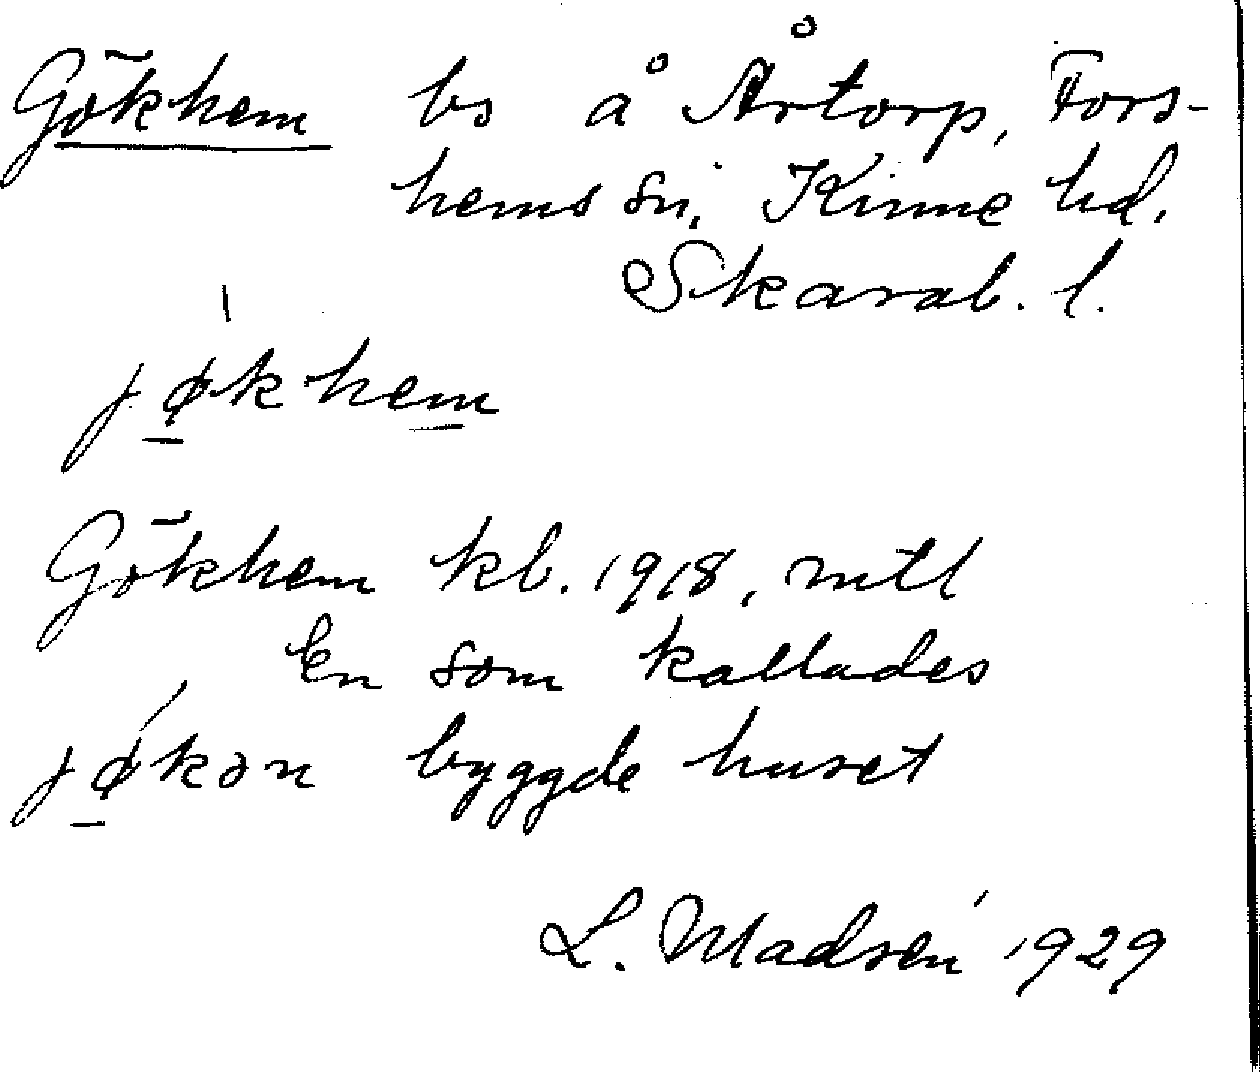 Gökhem bs å Årtorp, Fors-
hems sn, Kinne hd,
Skarab. l.
jøkhem
Gökhem kb. 1918, mtl
En som kallades
jøkən byggde huset
L. Madsén 1929